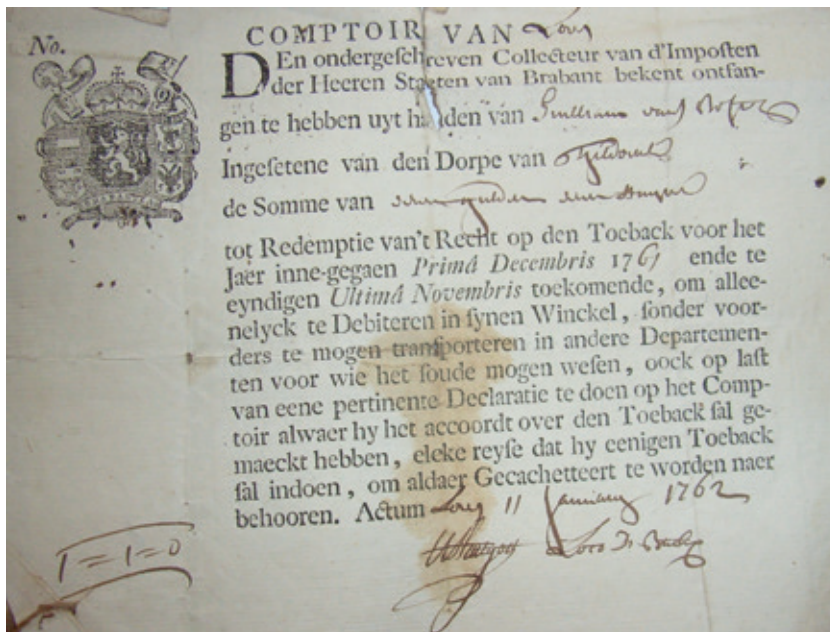 No.
COMPTOIR VAN Loven
DEn ondergeſchreven Collecteur van d'Impoſten
der Heeren Staeten van Brabant bekent ontfan-
gen te hebben uyt handen van
Ingeſetene van den Dorpe van
de Somme van
tot Redemptie van't Recht op den Toeback voor het
Jaer inne-gegaen Primâ Decembris 1761 ende te
eyndigen Ultimâ Novembris toekomende, om allee-
nelyck te Debiteren in ſynen Winckel, ſonder voor-
ders te mogen transporteren in andere Departemen-
ten voor wie het ſoude mogen weſen, oock op laſt
van eene pertinente Declaratie te doen op het Comp-
toir alwaer hy het accoordt over den Toeback ſal ge-
maeckt hebben, eleke reyſe dat hy eenigen Toeback
ſal indoen, om aldaer Gecachetteert te worden naer
behooren. Actum 11 January 1762
1=1=0